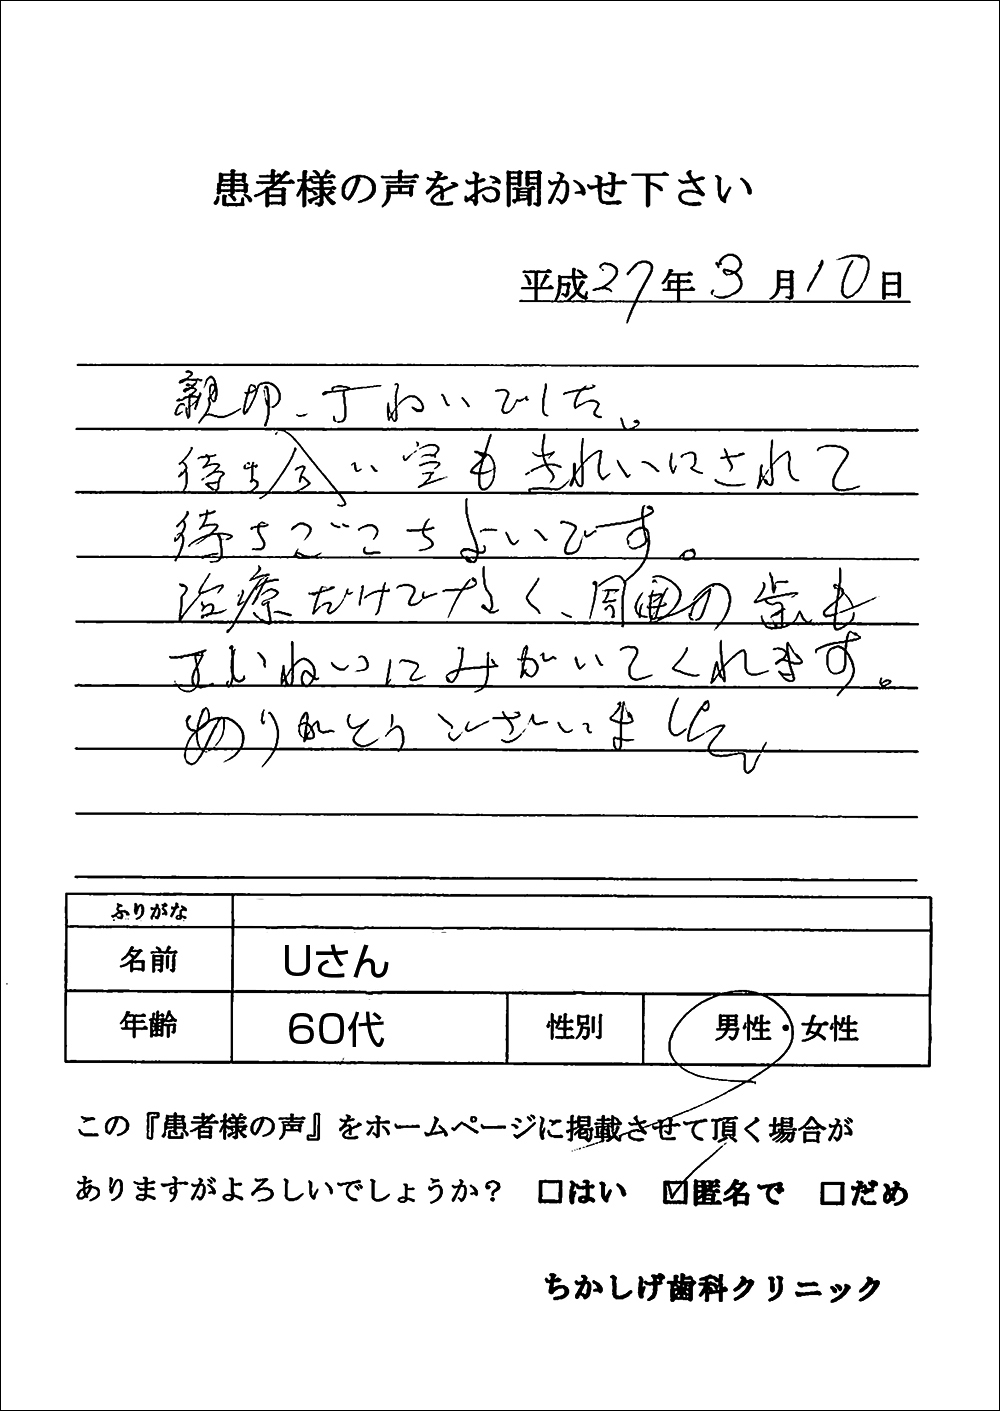 患者様の声をお聞かせ下さい
平成27年3月10日
親切、丁ねいでした。
待ち合い室もきれいにされて
待ちごこちよいです。
治療だけでなく、周囲の歯も
ていねいにみがいてくれます。
ありがとうございました
ふりがな
名前 Uさん
年齢 60代 性別 男性・女性
この『患者様の声』をホームページに掲載させて頂く場合が
ありますがよろしいでしょうか？ □はい ☑匿名で □だめ
ちかしげ歯科クリニック